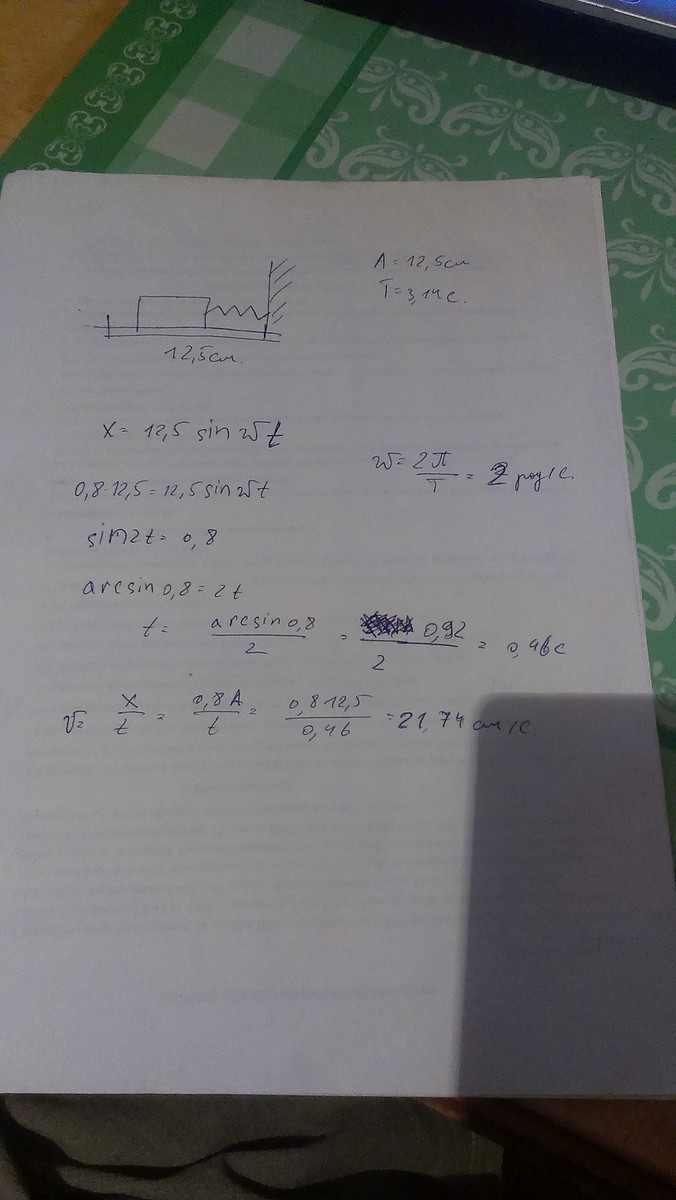 A = 12,5см
T = 3,14 с.
12,5см.
x = 12,5 sin ωt
ω = 2π/T = 2 рад/с.
0,8·12,5 = 12,5 sin ωt
sin2t = 0,8
arcsin 0,8 = 2t
t = arcsin 0,8/2 = 0,92/2 = 0,46с
v = x/t = 0,8A/t = 0,8·12,5/0,46 = 21,74 см/с